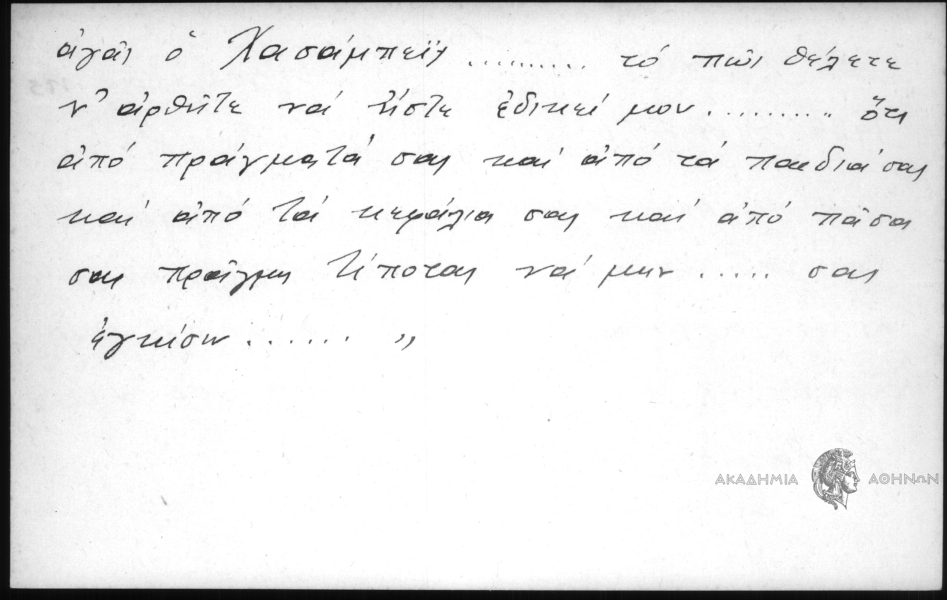 ἀγᾶς ὁ Χασάμπεϊς ......... τό πῶς θέλετε
ν' ἀρθῆτε νά ἦστε ἐδικεί μου ......... ὅτι
ἀπό πράγματά σας καί ἀπό τά παιδιά σας
καί ἀπό τά κεφάλια σας καί ἀπό πᾶσα
σας πρᾶγμα τίποτας νά μην ..... σας
ἐγκίσω ...... ,,
ΑΚΑΔΗΜΙΑ ΑΘΗΝΩΝ